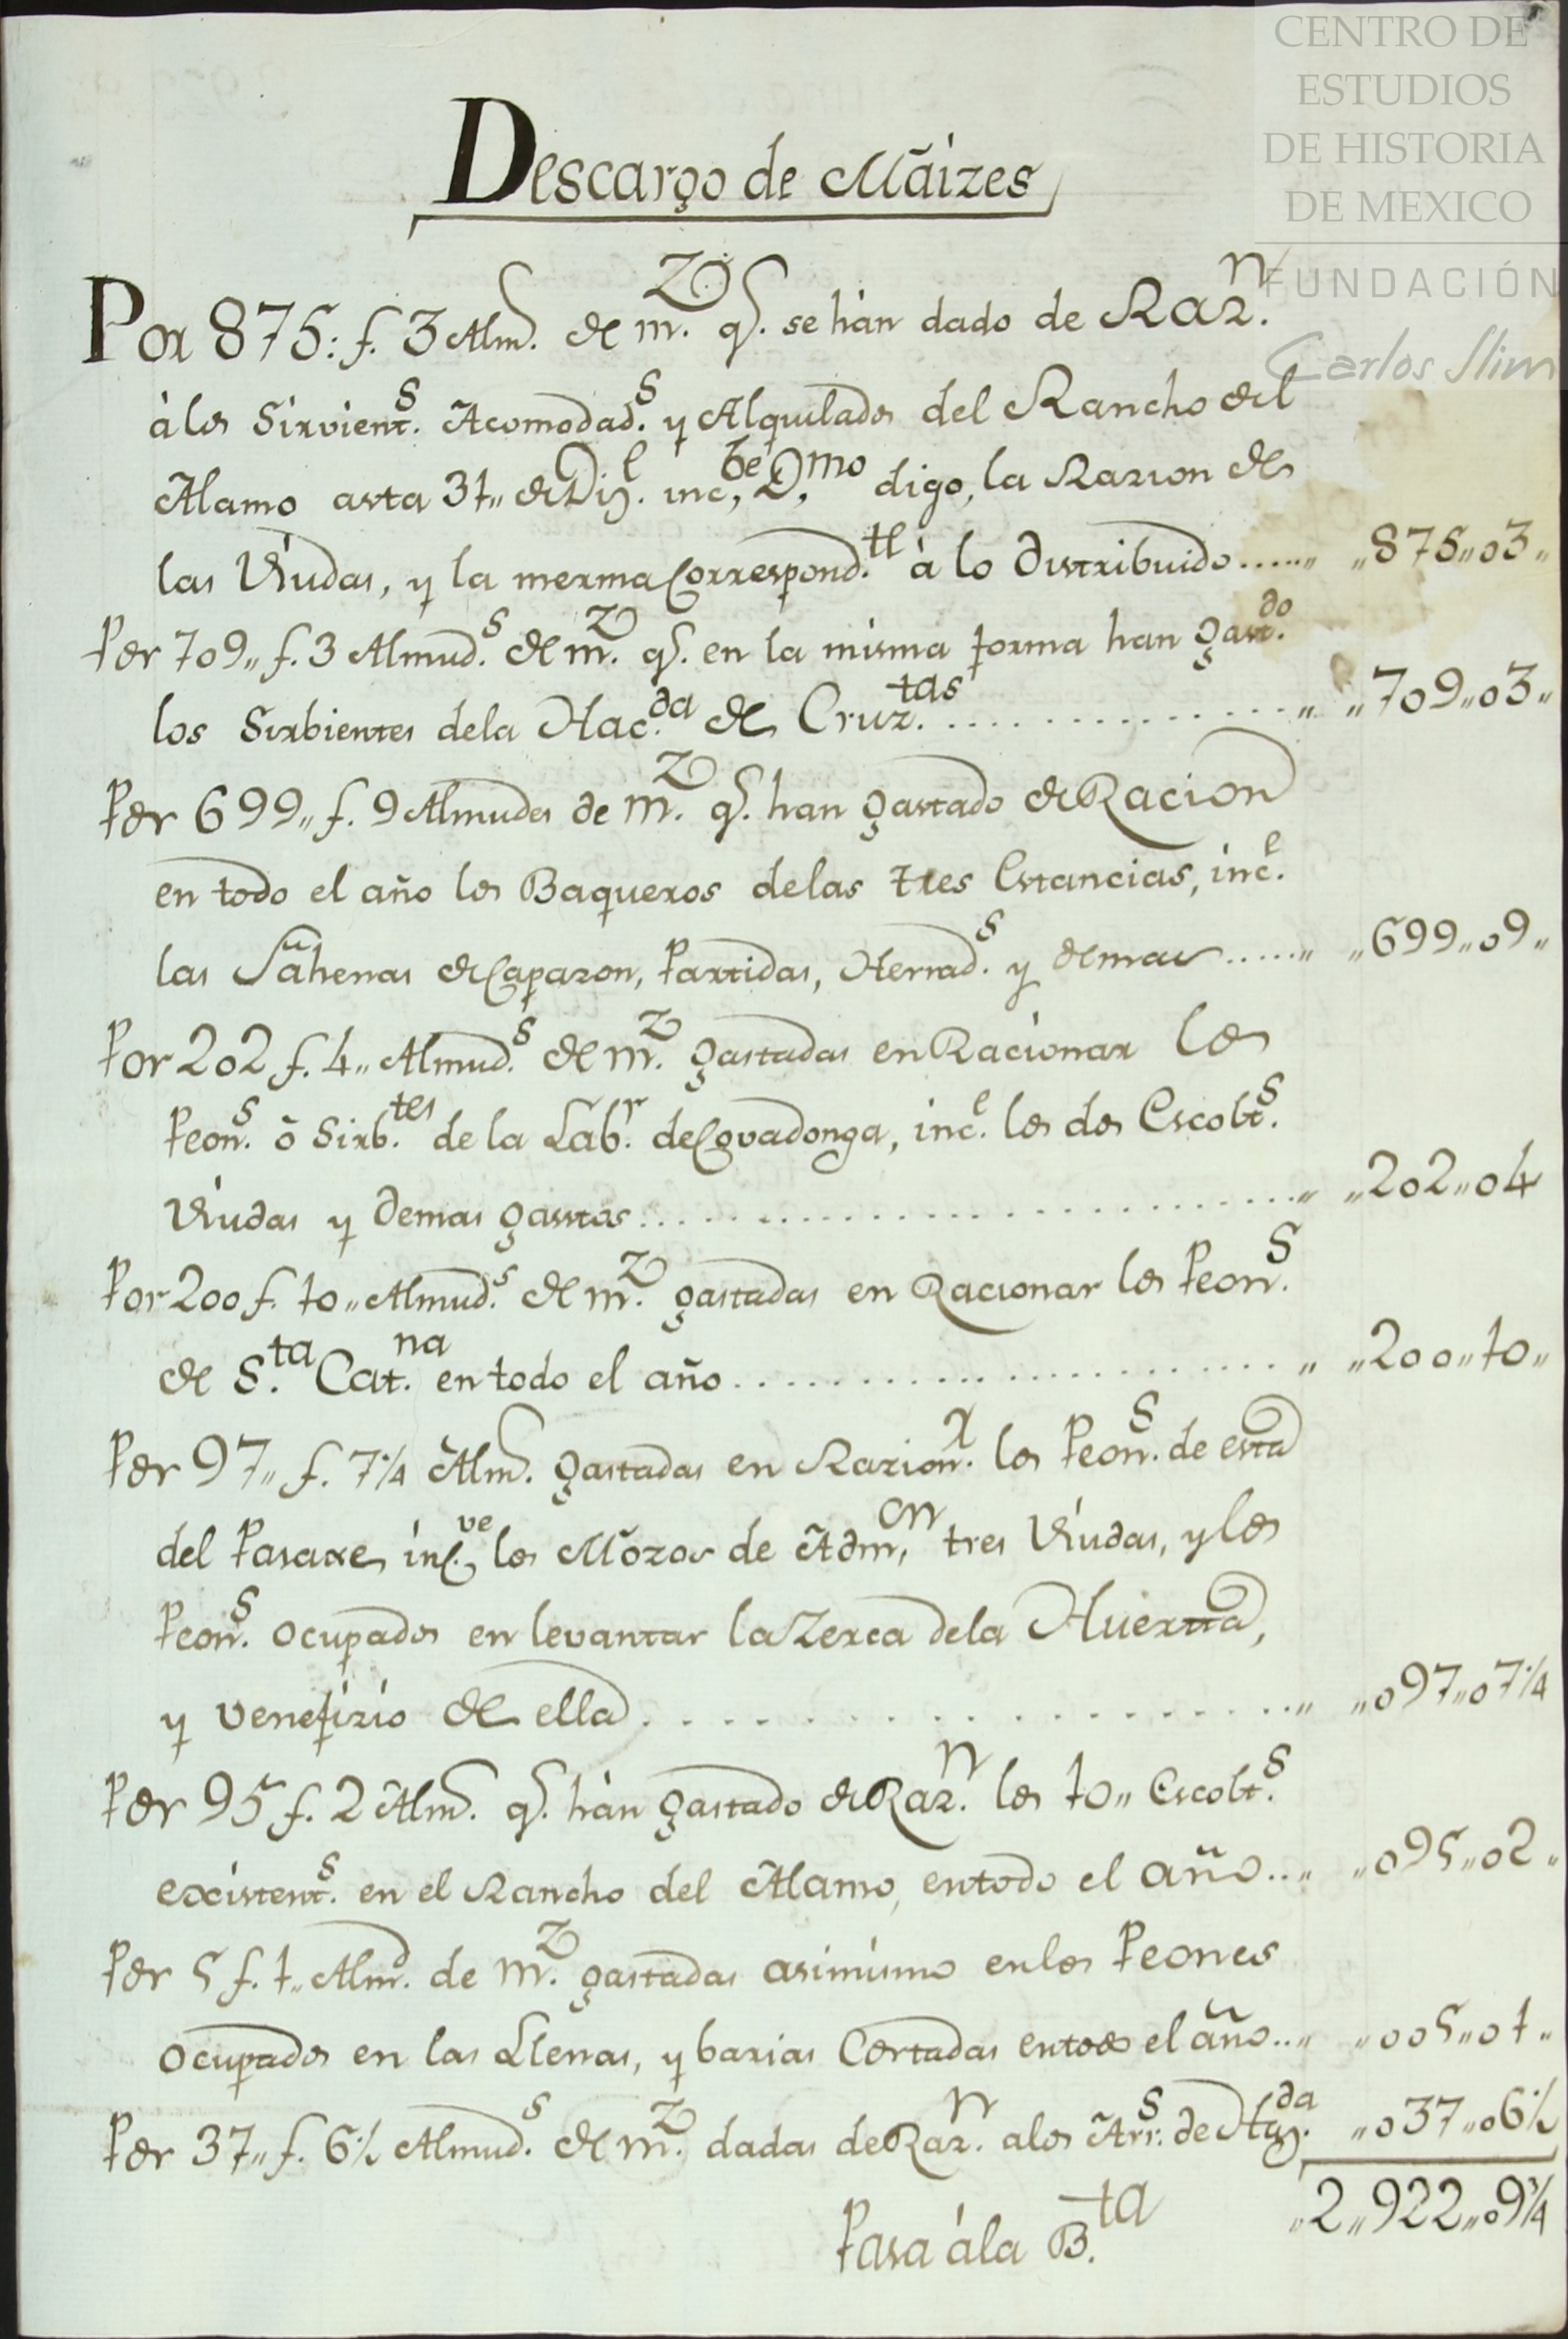 CENTRO DE
ESTUDIOS
DE HISTORIA
DE MEXICO
FUNDACIÓN
Carlos Slim
Descargo de Maizes
Por 875: f. 3 Alm.s de m.z q.e se hán dado de Raz.n
à los Sirvient.s Acomodad.s y Alquilados del Rancho del
Alamo asta 31,, de Diz.e inc,be D,mo digo, la Razion de
las Viudas, y la merma Correspond.te à lo distribuido...... ,,875,,03,,
Por 709,, f. 3 Almud.s de m.z q.e en la misma forma han gast.do
los Sirbientes dela Hac.da de Cruz.tas ............... ,,709,,03,,
Por 699,, f. 9 Almudes de m.z q.e han gastado de Racion
en todo el año los Baqueros delas tres Estancias, inc.e
las de Caparzon, Partidas, Herrad.s y demas...... ,,699,,09,,
Por 202 f. 4,, Almud.s de m.z gastadas en Racionar los
Peon.s ô Sirb.tes de la Lab.r de Covadonga, inc.e los dos Escolt.s
Viudas y demas gastos ............... ,,202,,04
Por 200 f. 10,, Almud.s de m.z gastadas en Racionar los Peon.s
de S.ta Cat.na en todo el año ............... ,,200,,10,,
Por 97,, f. 7 1/4 Alm.s gastadas en Razion.r los Peon.s de esta
del Pasaxe, inc.ve los Mozos de Adm,on tres Viudas, y los
Peon.s ocupados en levantar la Zerca dela Huerta,
y venefizio de ella ............... ,,097,,07 1/4
Por 95 f. 2 Alm.s q.e hán gastado de Raz.n los 10,, Escolt.s
existent.s en el Rancho del Alamo, entodo el año.... ,,095,,02,,
Por 5 f. 1,, Alm.d de m.z gastadas asimismo enlos Peones
ocupados en las Llenas, y barias Cortadas entodo el año.... ,,005,,01,,
Por 37,, f. 6 1/2 Almud.s de m.z dadas de Raz.n alos Arr.s de Haz.da ,,037,,06 1/2
Pasa á la B.ta ,,2,,922,,09 3/4